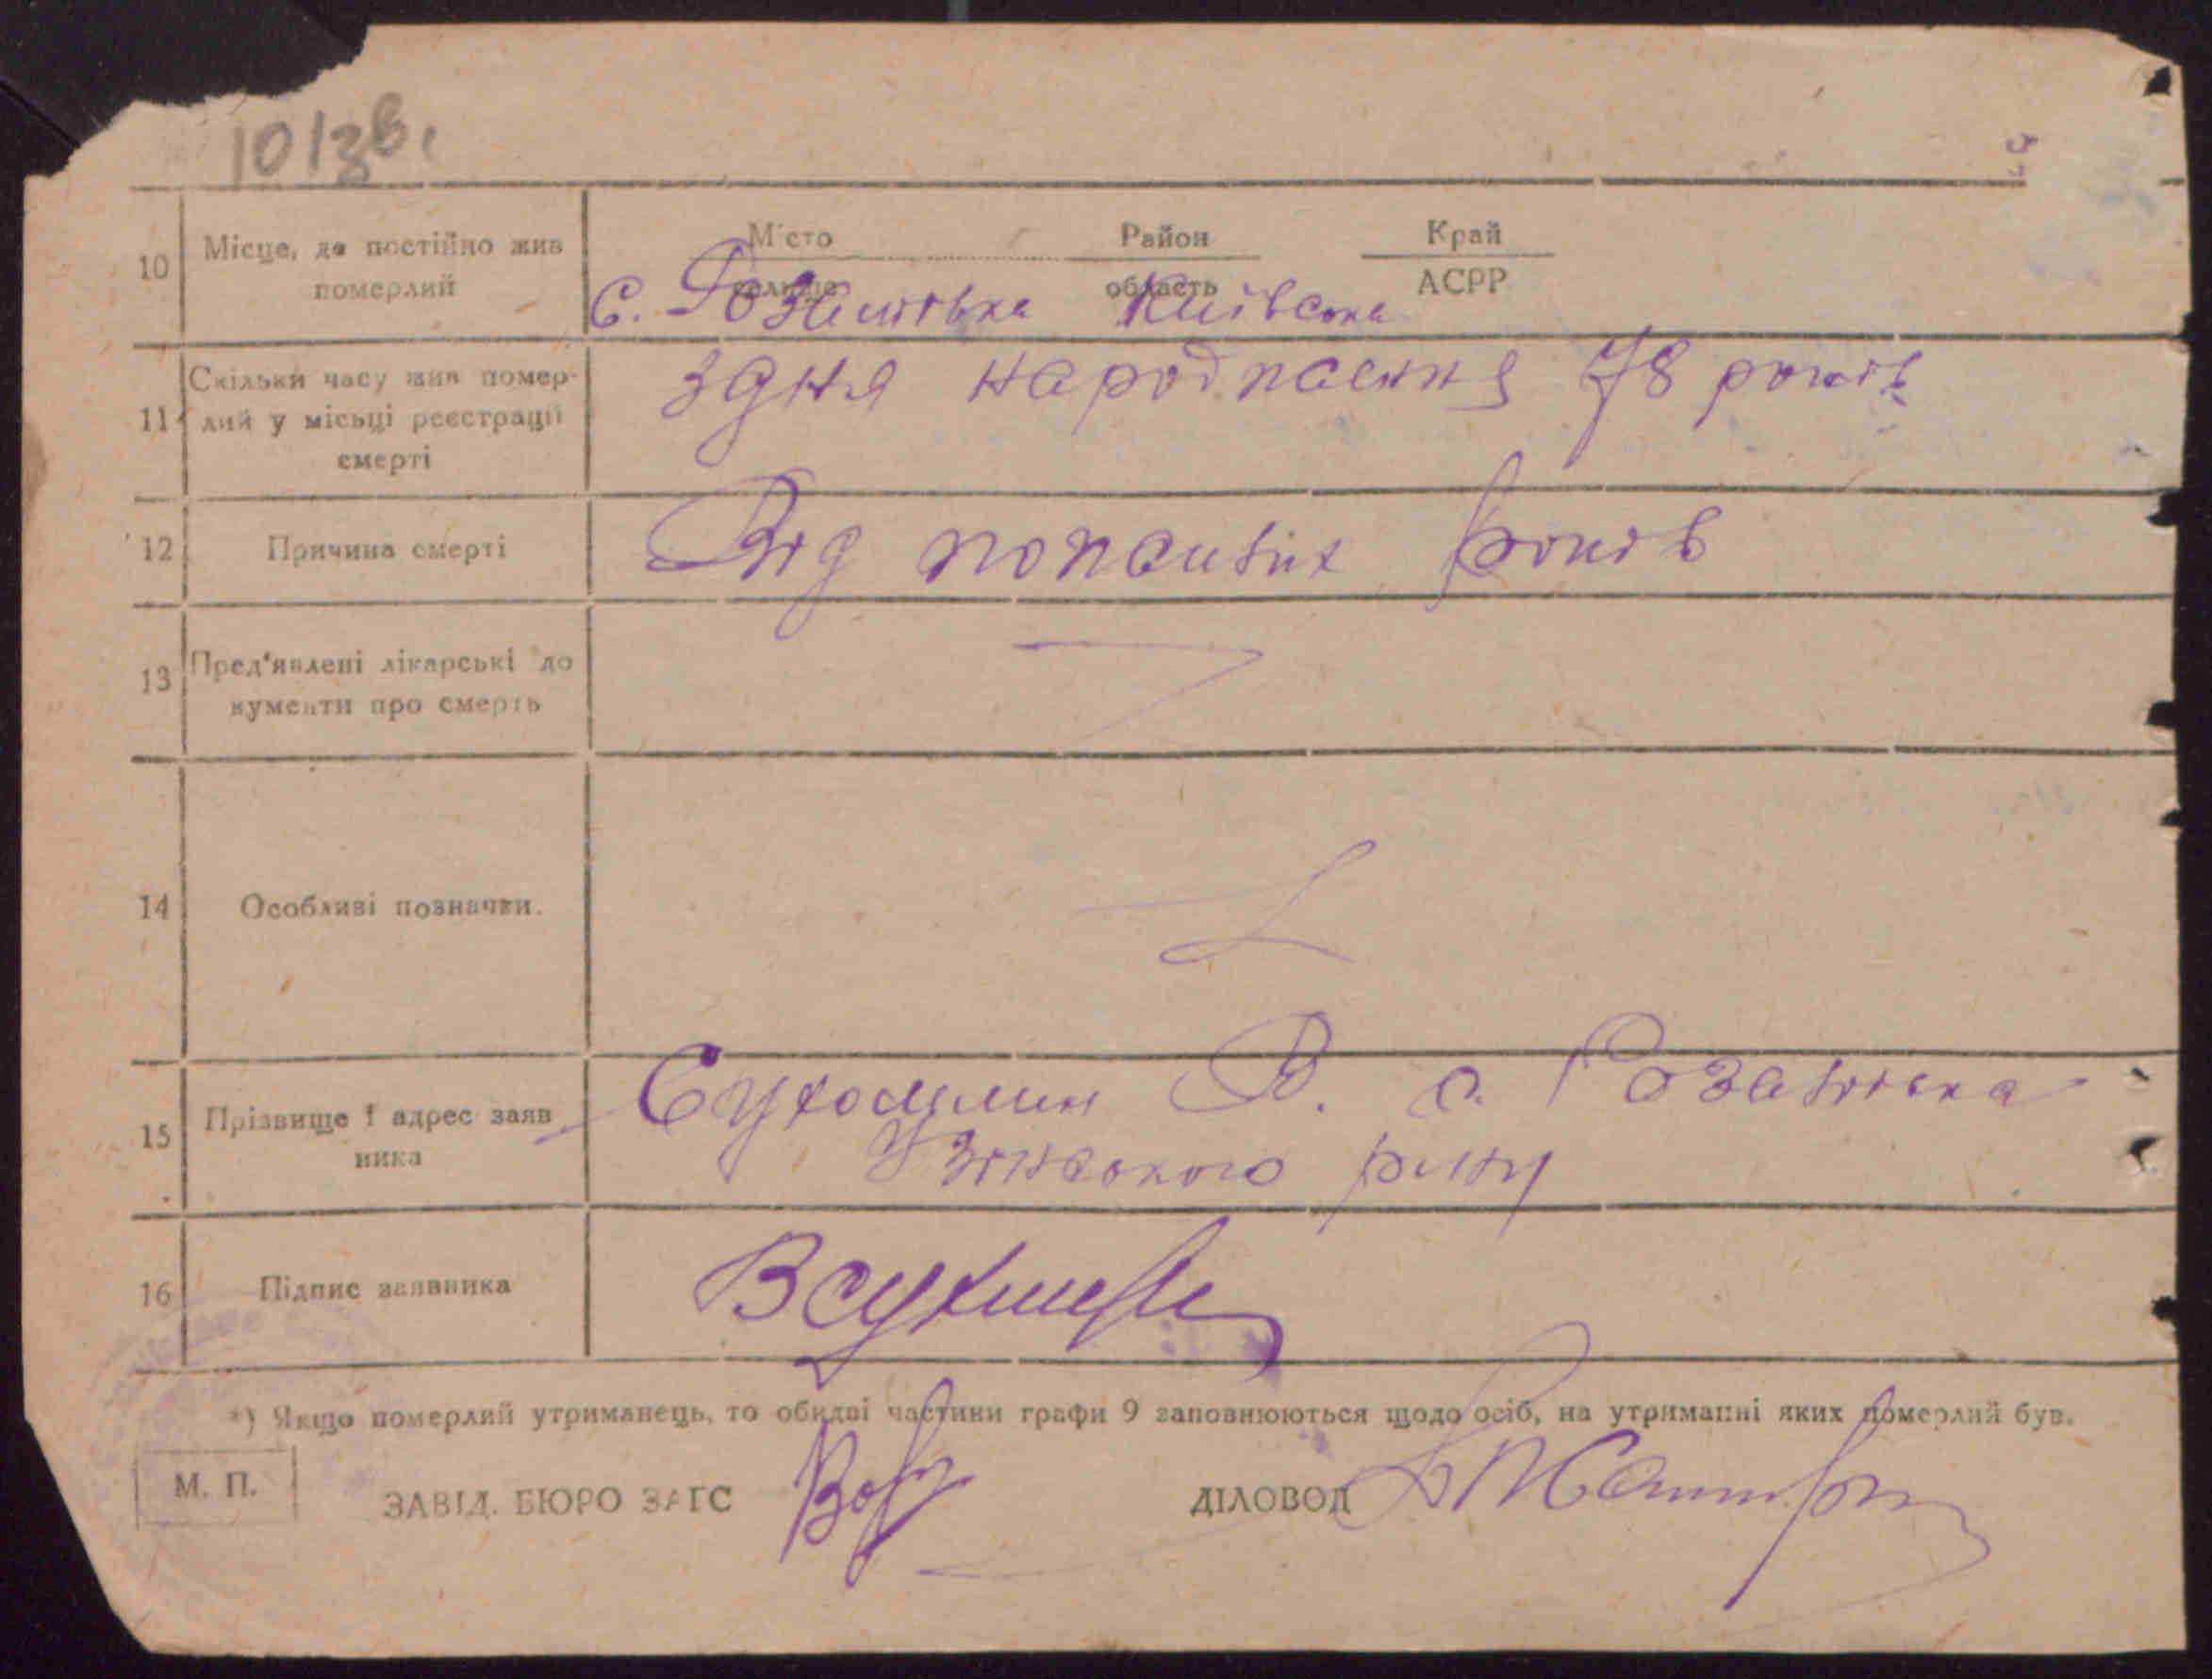 10 Місце, де постійно жив
померлий
М'сто Район Край
селище область АСРР
с. Розаліївка Київська
11 Скільки часу жив помер-
лий у місьці реєстрації
смерті
здня народлення 78 років
12 Причина смерті
Від похилих років
13 Пред'явлені лікарські до
кументи про смерть
14 Особливі позначки.
15 Прізвище і адрес заяв
ника
Сухомлин В. с. Розаліївка
Узінського р-ну
16 Підпис заявника
*) Якщо померлий утриманець, то обидві частини графи 9 заповнюються щодо осіб, на утриманні яких померлий був.
М. П.
ЗАВІД. БЮРО ЗАГС ДІЛОВОД